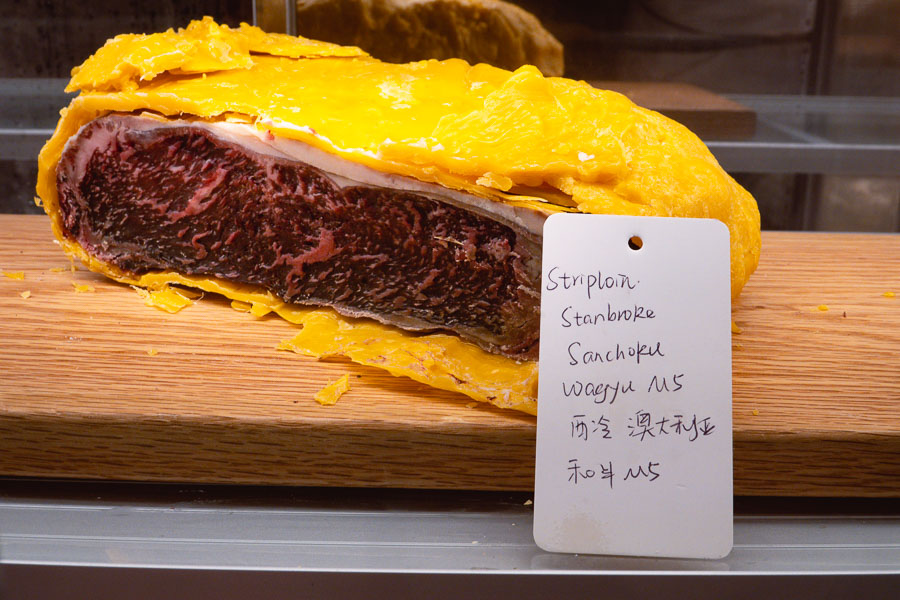 Striploin.
Stanbroke
Sanchoku
Wagyu M5
西冷 澳大利亚
和牛 M5